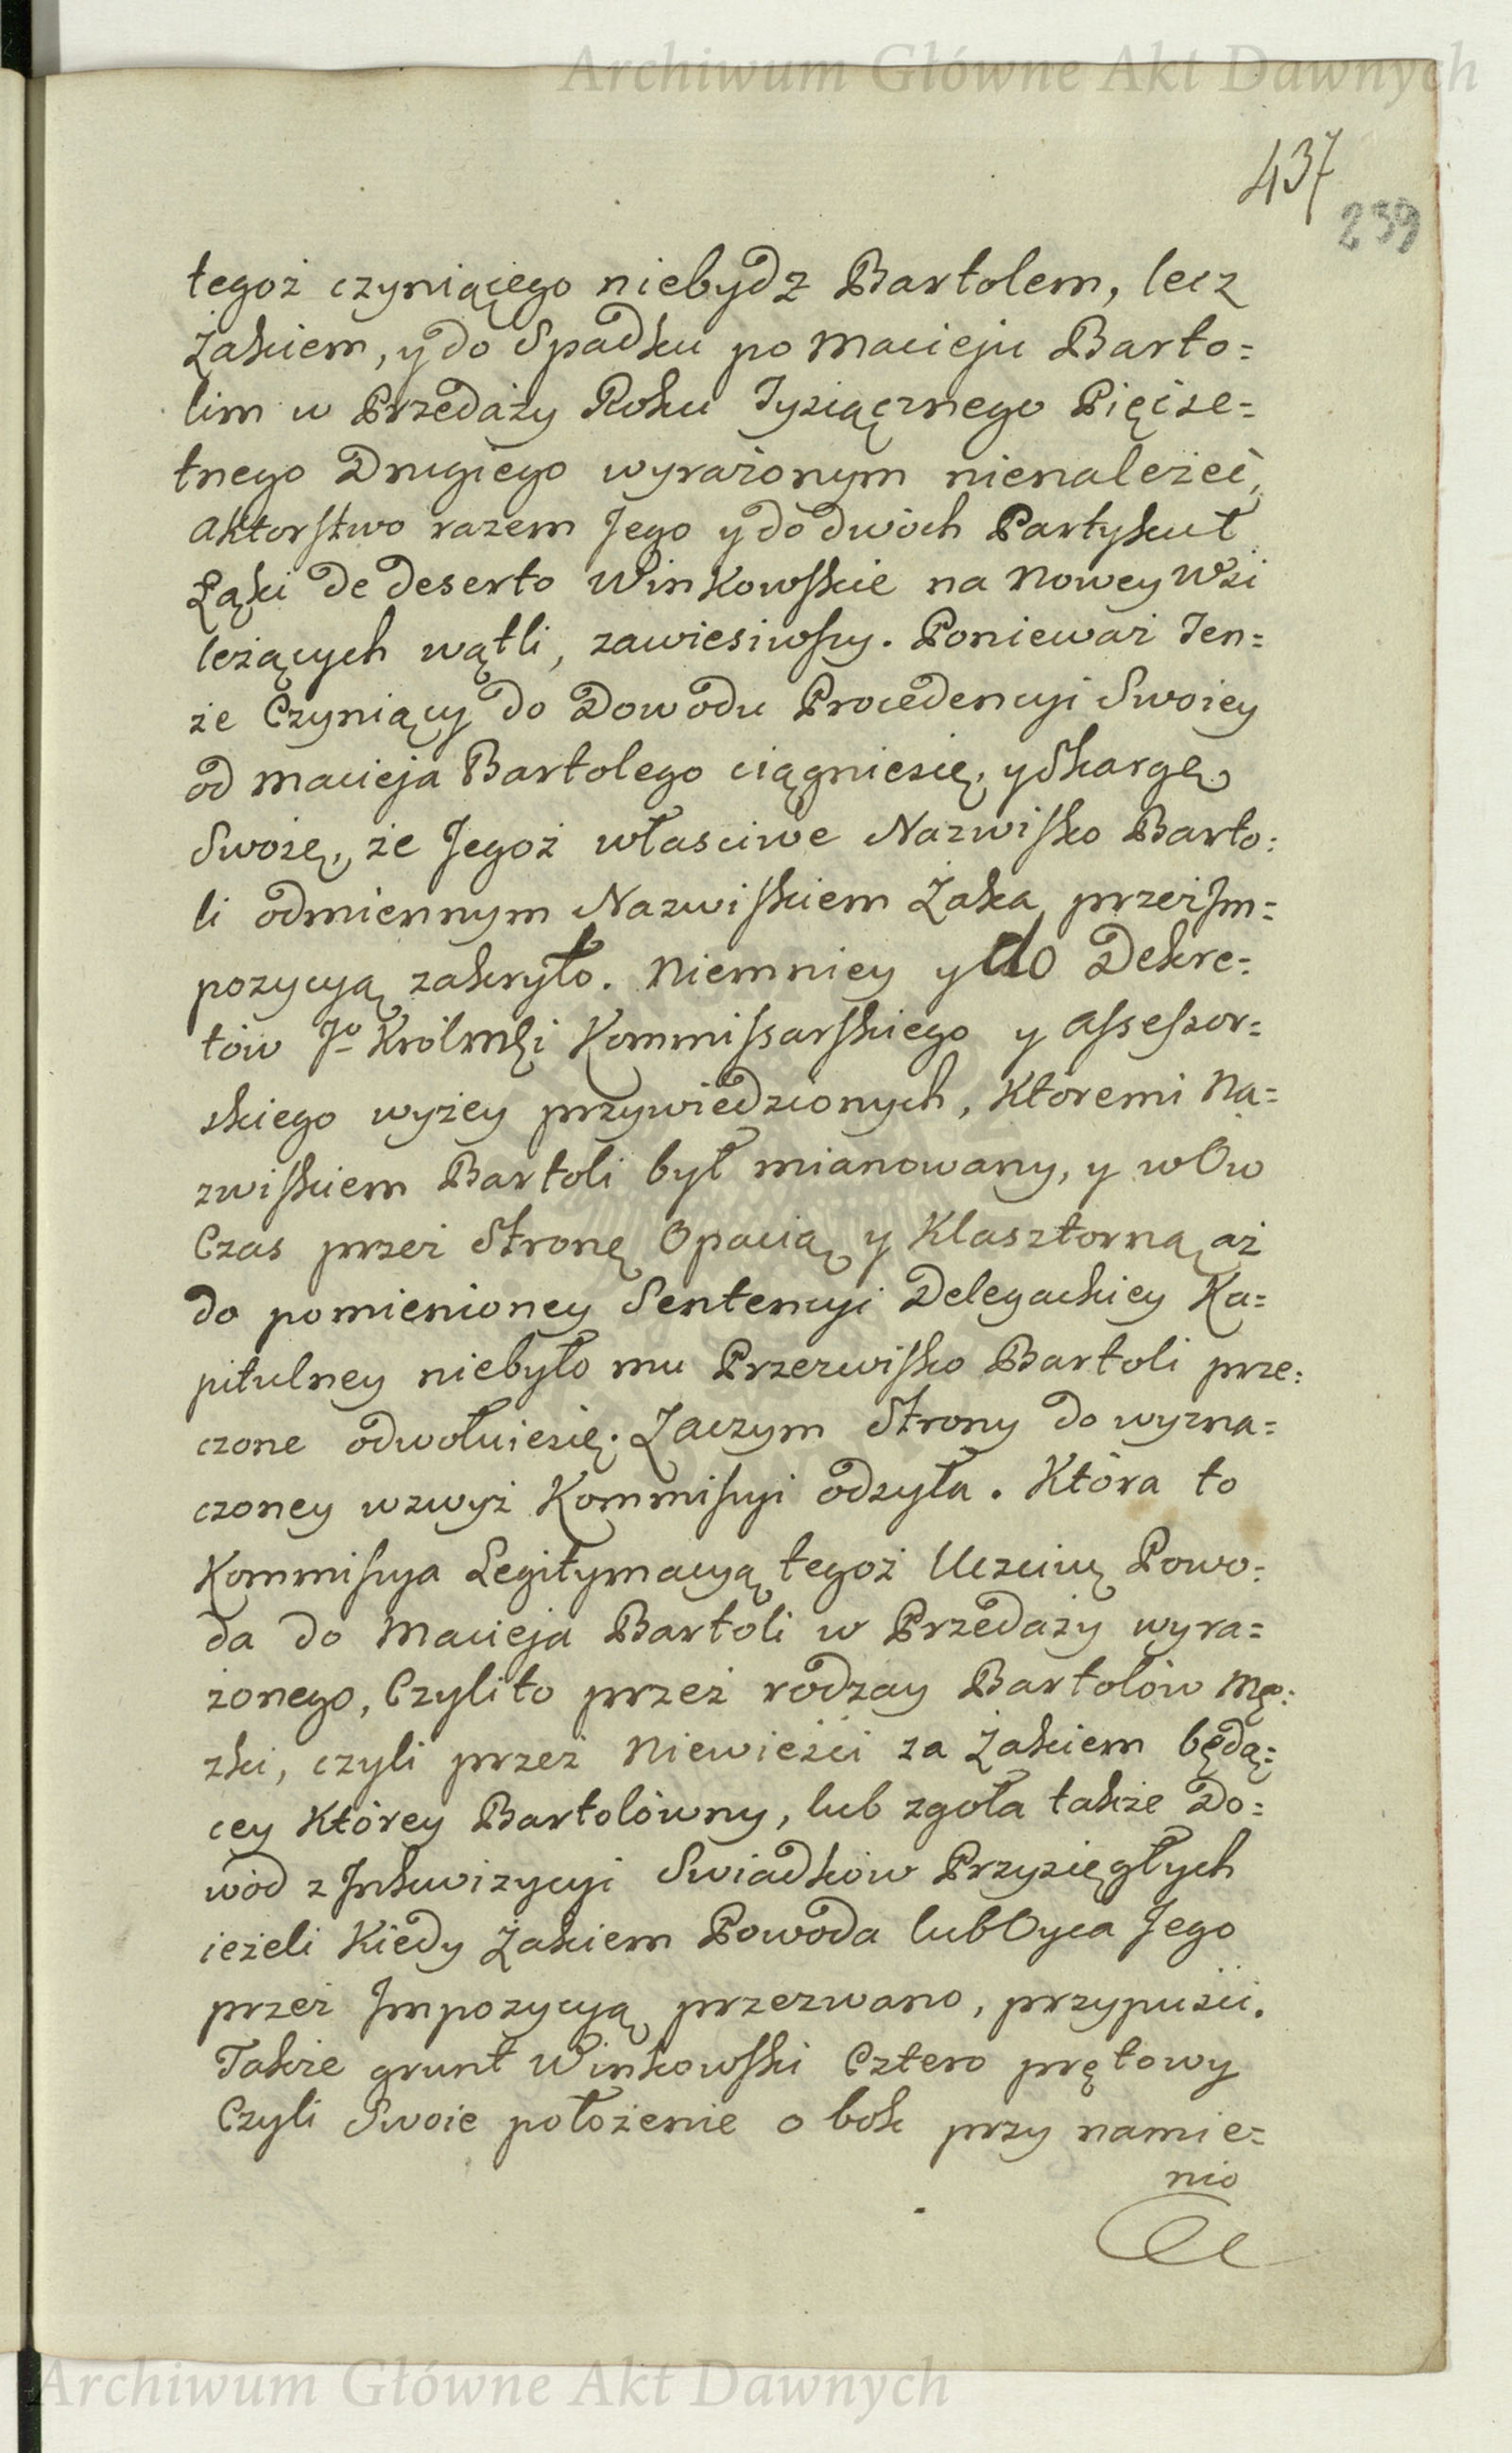 Archiwum Główne Akt Dawnych
437
239
tegoż czyniącego niebydz Bartolem, lecz
Żakiem, y do Spadku po Macieju Barto=
lim w Przedaży Roku Tysiącznego Pięćse=
tnego Drugiego wyrażonym nienależeć,
aktorstwo razem Jego y do dwóch Partykuł
Łąki de deserto Winkowskie na Nowey Wsi
leżących wątli, zawiesiwszy. Ponieważ Ten=
że Czyniący do Dowodu Procedencyi Swoiey
od Macieja Bartolego ciągniesię, y Skargę
Swoię, że Jegoż własciwe Nazwisko Barto=
li odmiennym Nazwiskiem Żaka przez Jm=
pozycyą zakryto. Niemniey y do Dekre=
tów Jo Królmsi Kommissarskiego y assessor=
skiego wyżey przywiedzionych, Któremi Na=
zwiskiem Bartoli był mianowany, y w Ow
Czas przez Stronę Opacią y Klasztorną aż
do pomienioney Sentencyi Delegackiey Ka=
pitulney niebyło mu Przezwisko Bartoli prze=
czone odwołuiesię. Zaczym Strony do wyzna=
czoney wzwyż Kommissyi odsyła. Która to
Kommissya Legitymacyą tegoż Uczciwę Powo=
da do Macieja Bartoli w Przedaży wyra=
żonego, Czylito przez rodzay Bartolów Mę=
zki, czyli przez Niewieści za Żakiem będą=
cey Którey Bartolówny, lub zgoła także Do=
wód z Jnkwizycyi Swiadków Przysięgłych
ieżeli Kiedy Żakiem Powoda lub Oyca Jego
przez Jmpozycyą przezwano, przypuści.
Także grunt Winkowski Cztero prętowy
Czyli Swoie położenie o bok przy namie=
nio
Archiwum Główne Akt Dawnych